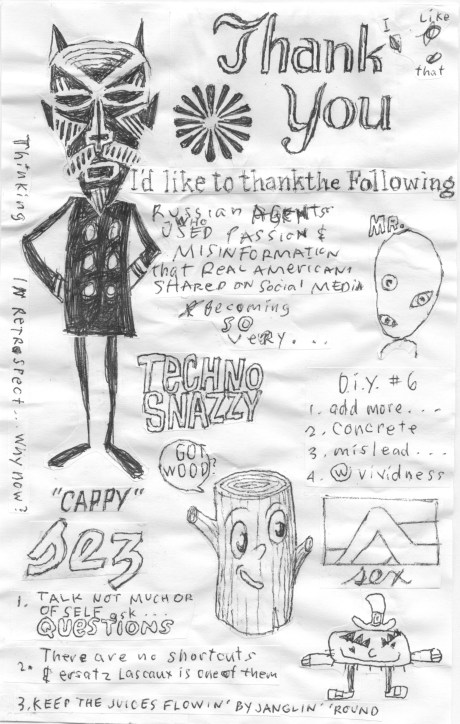 Thank
You
I Like
that
I'd like to thankthe Following
Russian AGENTS
WHO
USED PASSION &
MISINFORMATION
that REAL AMERICANS
SHARED ON SOCIAL MEDIA
& Becoming
SO
VERY...
MR.
Thinking
IN RETROSPECT... WHY NOW?
TECHNO
SNAZZY
D.i.Y. #6
1. add more...
2. concrete
3. mislead...
4. W vividness
GOT
WOOD?
"CAPPY"
SEZ
SOX
1. TALK NOT MUCH OR
OF SELF ask...
QUESTIONS
2. There are no shortcuts
& ersatz Lascaux is one of them
3. KEEP THE JUICES FLOWIN' BY JANGLIN' 'ROUND